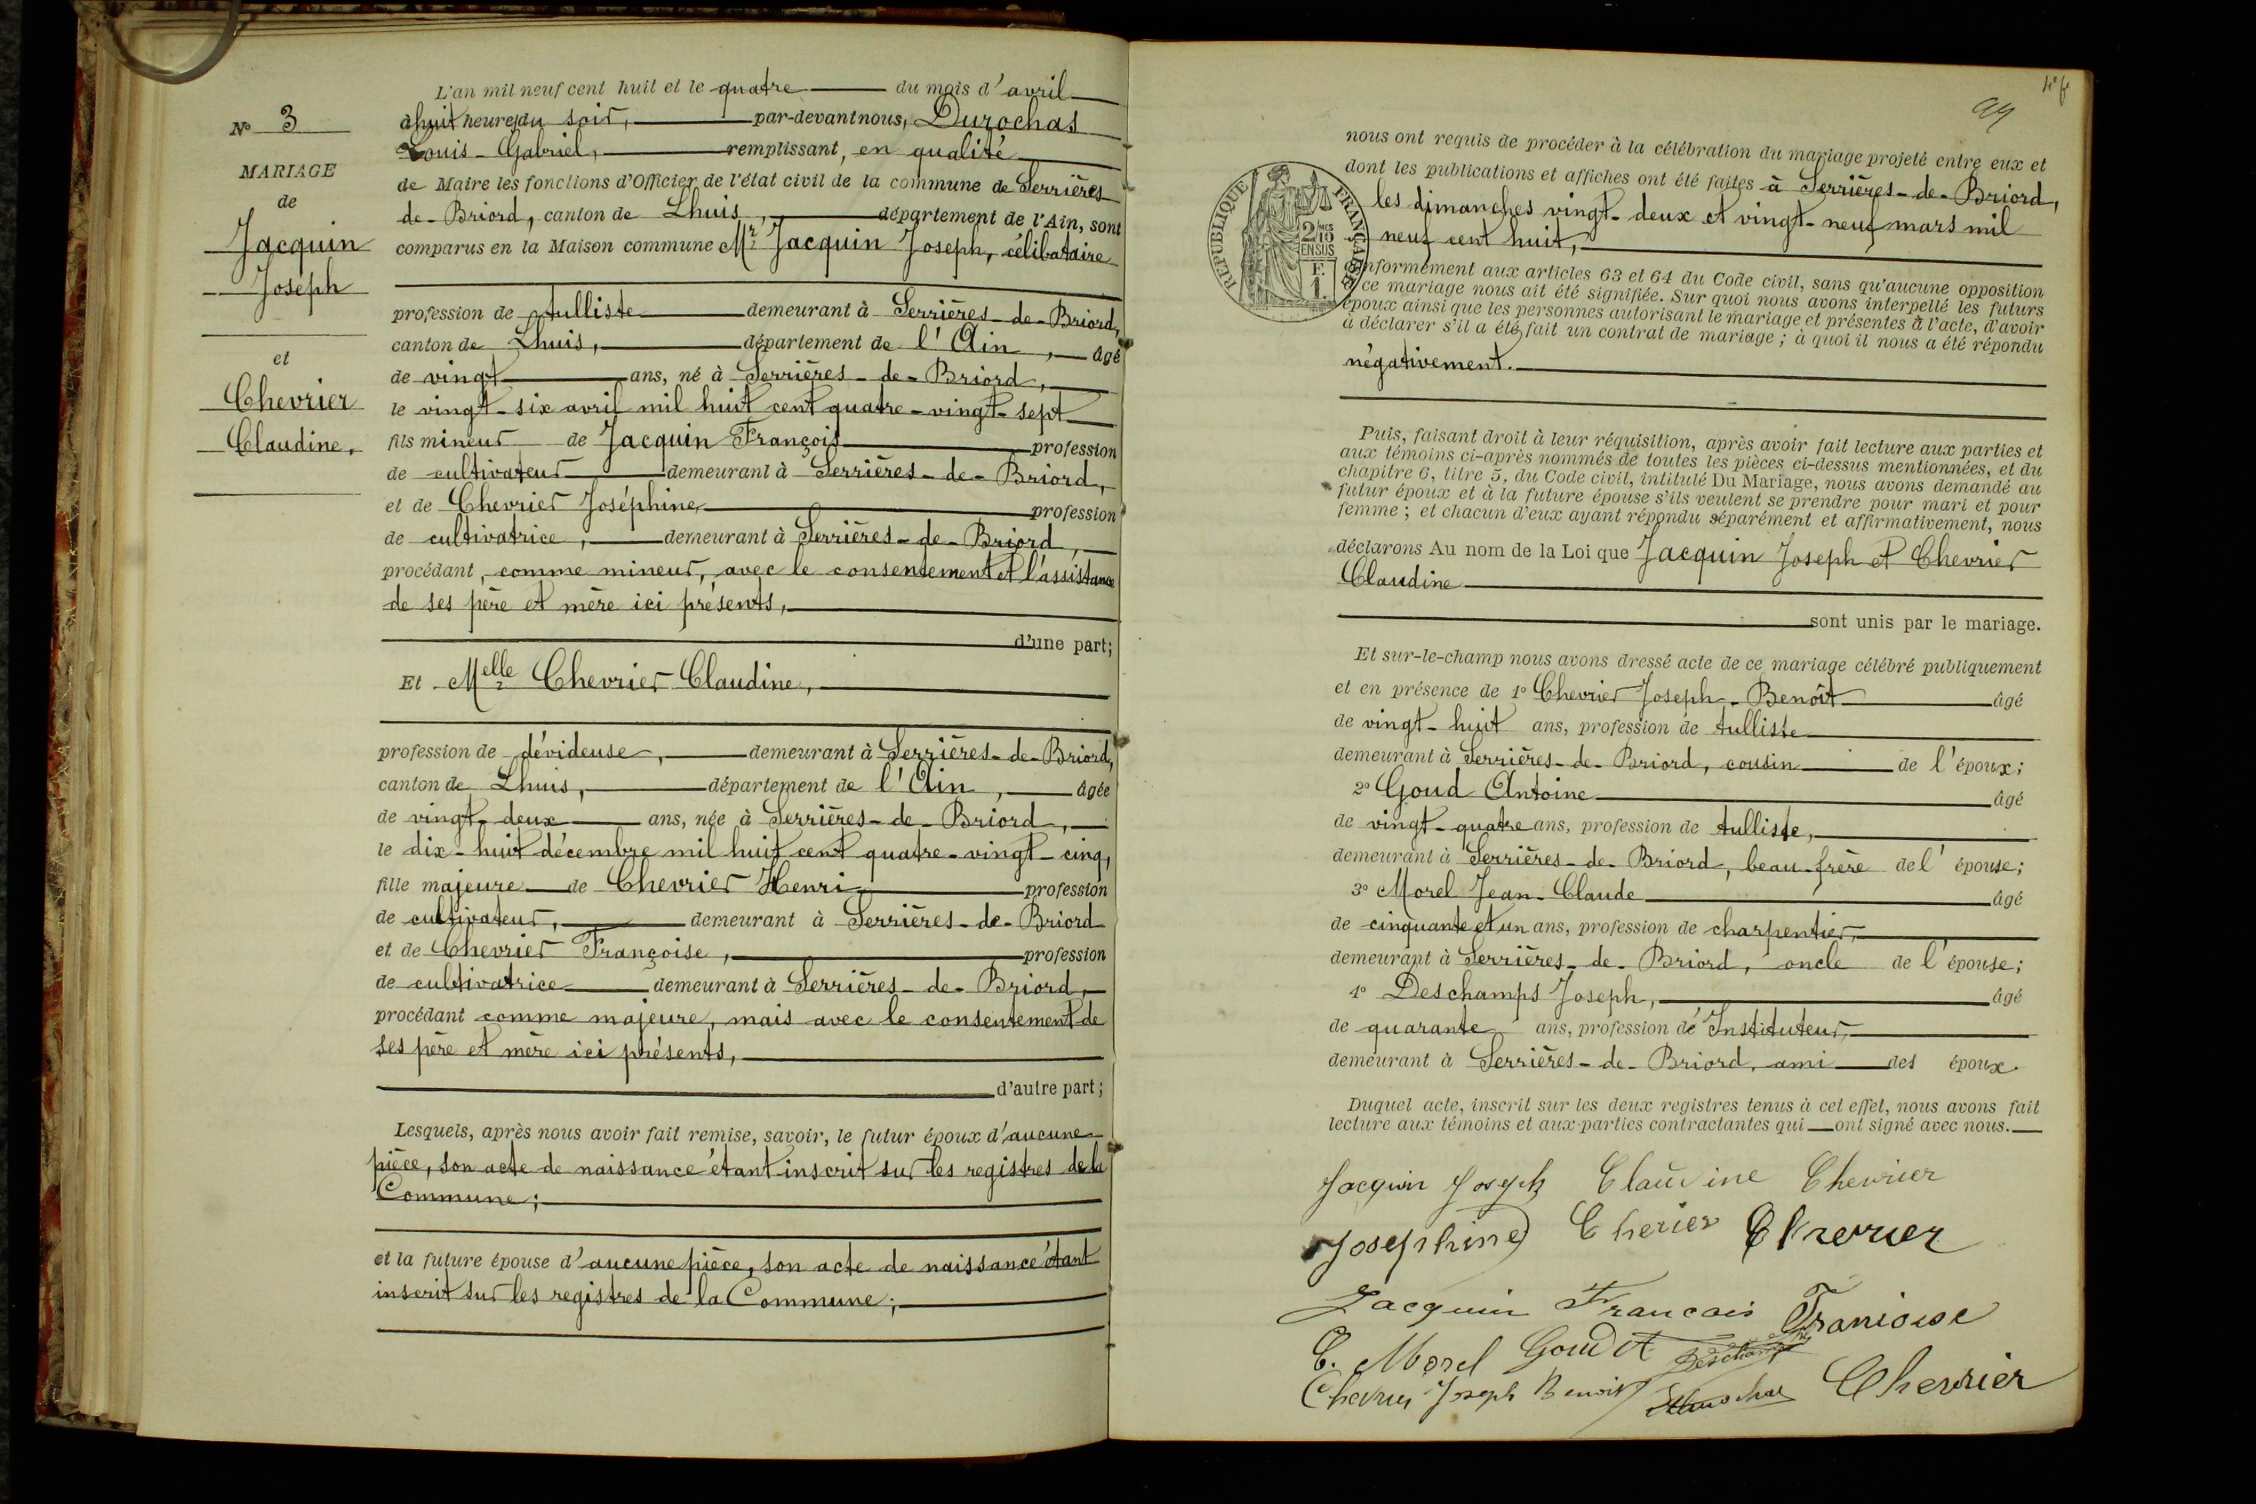 N° 3
MARIAGE
de
Jacquin
Joseph
et
Chevrier
Claudine.
L'an mil neuf cent huit et le quatre du mois d'avril
à huit heures du soir, par-devant nous, Durochat
Louis-Gabriel, remplissant, en qualité
de Maire les fonctions d'Officier de l'état civil de la commune de Serrières-
de-Briord, canton de Lhuis, département de l'Ain, sont
comparus en la Maison commune Mr Jacquin Joseph, célibataire
profession de tulliste demeurant à Serrières-de-Briord,
canton de Lhuis, département de l'Ain, âgé
de vingt ans, né à Serrières-de-Briord,
le vingt-six avril mil huit cent quatre-vingt-sept
fils mineur de Jacquin François profession
de cultivateur demeurant à Serrières-de-Briord,
et de Chevrier Joséphine, profession
de cultivatrice, demeurant à Serrières-de-Briord,
procédant, comme mineur, avec le consentement et l'assistance
de ses père et mère ici présents,
d'une part;
Et Melle Chevrier Claudine,
profession de dévideuse, demeurant à Serrières-de-Briord,
canton de Lhuis, département de l'Ain, âgée
de vingt-deux ans, née à Serrières-de-Briord,
le dix-huit décembre mil huit cent quatre-vingt-cinq,
fille majeure de Chevrier Henri profession
de cultivateur, demeurant à Serrières-de-Briord
et de Chevrier Françoise, profession
de cultivatrice demeurant à Serrières-de-Briord,
procédant comme majeure, mais avec le consentement de
ses père et mère ici présents,
d'autre part;
Lesquels, après nous avoir fait remise, savoir, le futur époux d'aucune
pièce, son acte de naissance étant inscrit sur les registres de la
Commune;
et la future épouse d'aucune pièce, son acte de naissance étant
inscrit sur les registres de la Commune;
99
REPUBLIQUE FRANÇAISE
2 MES
10
EN SUS
F.
1.
nous ont requis de procéder à la célébration du mariage projeté entre eux et
dont les publications et affiches ont été faites à Serrières-de-Briord,
les dimanches vingt-deux et vingt-neuf mars mil
neuf cent huit,
conformément aux articles 63 et 64 du Code civil, sans qu'aucune opposition
à ce mariage nous ait été signifiée. Sur quoi nous avons interpellé les futurs
époux ainsi que les personnes autorisant le mariage et présentes à l'acte, d'avoir
à déclarer s'il a été fait un contrat de mariage; à quoi il nous a été répondu
négativement.
Puis, faisant droit à leur réquisition, après avoir fait lecture aux parties et
aux témoins ci-après nommés de toutes les pièces ci-dessus mentionnées, et du
chapitre 6, titre 5, du Code civil, intitulé Du Mariage, nous avons demandé au
futur époux et à la future épouse s'ils veulent se prendre pour mari et pour
femme; et chacun d'eux ayant répondu séparément et affirmativement, nous
déclarons Au nom de la Loi que Jacquin Joseph et Chevrier
Claudine
sont unis par le mariage.
Et sur-le-champ nous avons dressé acte de ce mariage célébré publiquement
et en présence de 1° Chevrier Joseph-Benoît âgé
de vingt-huit ans, profession de tulliste
demeurant à Serrières-de-Briord, cousin de l'époux;
2° Goud Antoine âgé
de vingt-quatre ans, profession de tulliste,
demeurant à Serrières-de-Briord, beau-frère de l'épouse;
3° Morel Jean-Claude âgé
de cinquante et un ans, profession de charpentier,
demeurant à Serrières-de-Briord, oncle de l'épouse;
4° Deschamps Joseph, âgé
de quarante ans, profession de Instituteur,
demeurant à Serrières-de-Briord, ami des époux.
Duquel acte, inscrit sur les deux registres tenus à cet effet, nous avons fait
lecture aux témoins et aux parties contractantes qui ont signé avec nous.
Jacquin Joseph Claudine Chevrier
Josephine Cherier Chevrier
Jacquin Francois Franioise
C. Morel Goud A Deschamps
Chevrier Joseph Benoit Durochat Chevrier